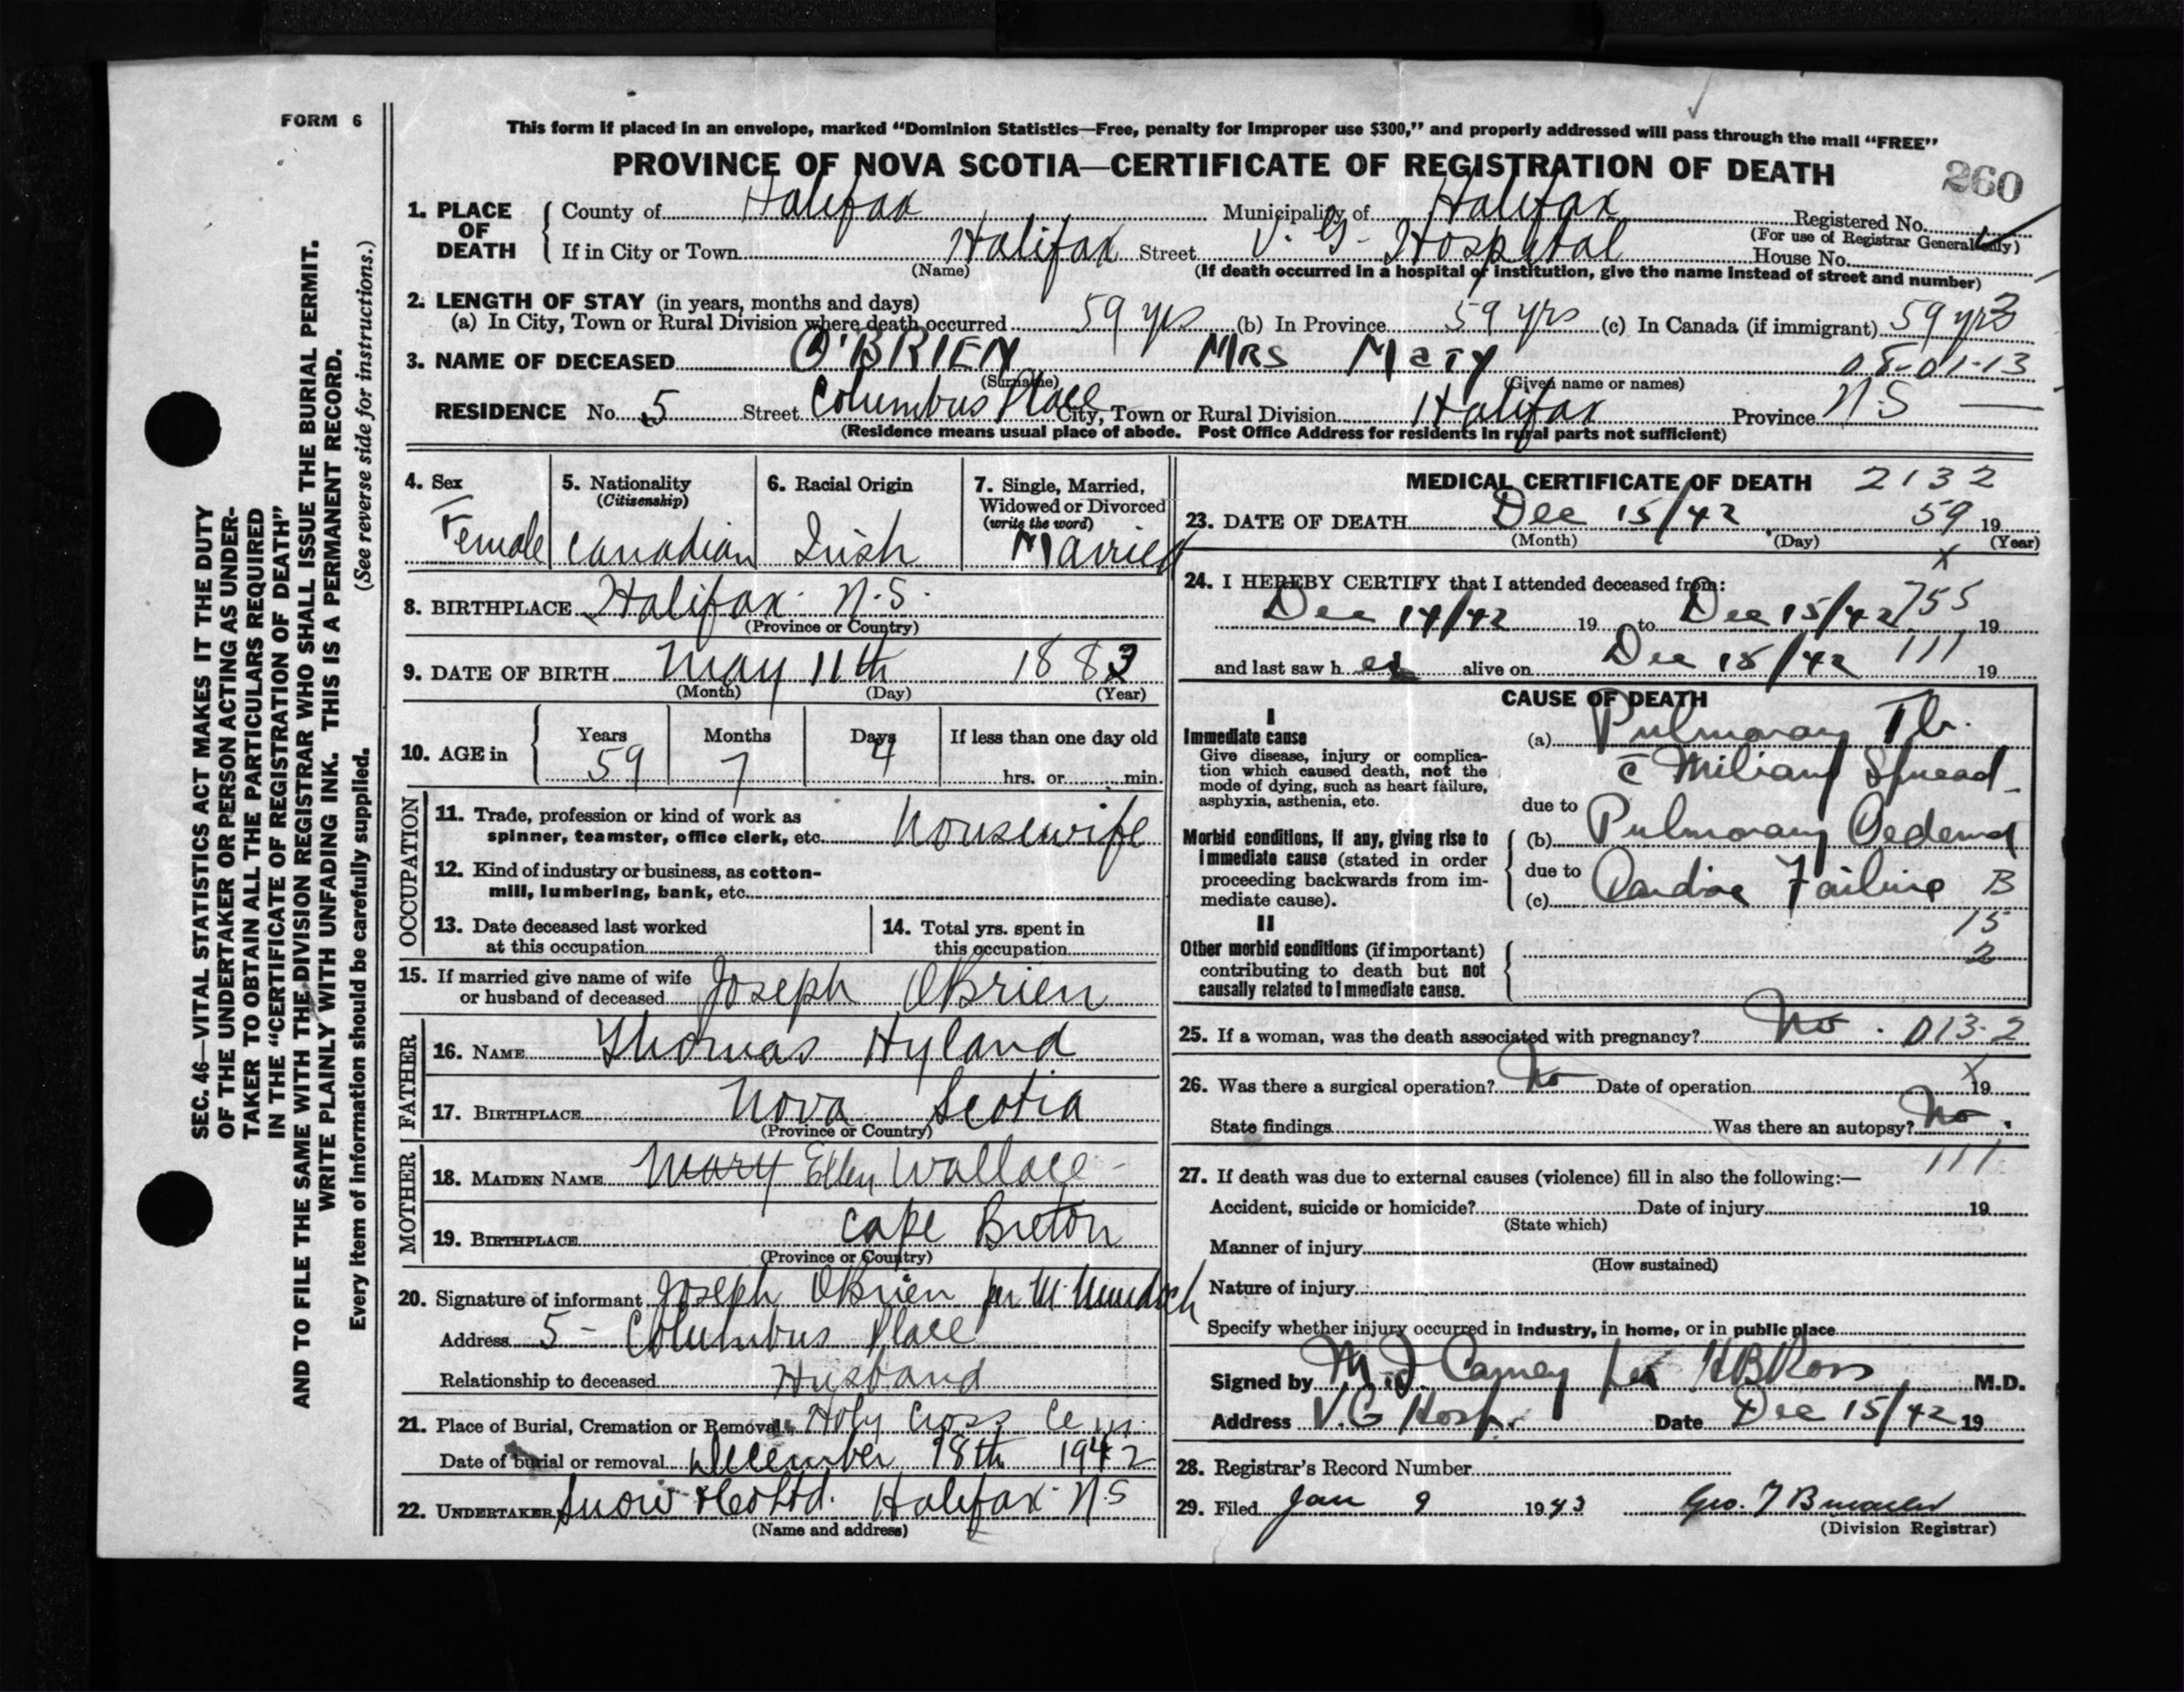 FORM 6
This form if placed in an envelope, marked "Dominion Statistics—Free, penalty for improper use $300," and properly addressed will pass through the mail "FREE"
PROVINCE OF NOVA SCOTIA—CERTIFICATE OF REGISTRATION OF DEATH
260
1. PLACE OF DEATH { County of Halifax Municipality of Halifax Registered No.
(For use of Registrar General only)
If in City or Town Halifax Street V. G. Hospital House No.
(Name) (If death occurred in a hospital or institution, give the name instead of street and number)
2. LENGTH OF STAY (in years, months and days)
(a) In City, Town or Rural Division where death occurred 59 yrs (b) In Province 59 yrs (c) In Canada (if immigrant) 59 yrs
3. NAME OF DECEASED O'BRIEN MRS Mary 08-01-13
(Surname) (Given name or names)
RESIDENCE No. 5 Street Columbus Place City, Town or Rural Division Halifax Province N.S
(Residence means usual place of abode. Post Office Address for residents in rural parts not sufficient)
4. Sex Female
5. Nationality (Citizenship) Canadian
6. Racial Origin Irish
7. Single, Married, Widowed or Divorced (write the word) Married
8. BIRTHPLACE Halifax. N.S.
(Province or Country)
9. DATE OF BIRTH May 11th 1883
(Month) (Day) (Year)
10. AGE in { Years 59 Months 7 Days 4 If less than one day old hrs. or min.
OCCUPATION
11. Trade, profession or kind of work as
spinner, teamster, office clerk, etc. housewife
12. Kind of industry or business, as cotton-
mill, lumbering, bank, etc.
13. Date deceased last worked
at this occupation
14. Total yrs. spent in
this occupation
15. If married give name of wife
or husband of deceased Joseph OBrien
FATHER
16. NAME Thomas Hyland
17. BIRTHPLACE Nova Scotia
(Province or Country)
MOTHER
18. MAIDEN NAME Mary Ellen Wallace
19. BIRTHPLACE Cape Breton
(Province or Country)
20. Signature of informant Joseph OBrien per M Murdoch
Address 5 - Columbus Place
Relationship to deceased Husband
21. Place of Burial, Cremation or Removal Holy Cross Cem.
Date of burial or removal December 18th 1942
22. UNDERTAKER Snow & Co Ltd. Halifax N.S
(Name and address)
MEDICAL CERTIFICATE OF DEATH 2132
23. DATE OF DEATH Dec 15/42 59 19
(Month) (Day) (Year)
x
24. I HEREBY CERTIFY that I attended deceased from:
Dec 14/42 19 to Dec 15/42 755 19
and last saw h er alive on Dec 15/42 111 19
CAUSE OF DEATH
I
Immediate cause
Give disease, injury or complica-
tion which caused death, not the
mode of dying, such as heart failure,
asphyxia, asthenia, etc.
(a) Pulmonary Tb.
c̄ Miliary Spread
due to
Morbid conditions, if any, giving rise to
immediate cause (stated in order
proceeding backwards from im-
mediate cause).
(b) Pulmonary Oedema
due to
(c) Cardiac Failure B
15
2
II
Other morbid conditions (if important)
contributing to death but not
causally related to immediate cause.
25. If a woman, was the death associated with pregnancy? No. 013.2
x
26. Was there a surgical operation? No Date of operation 19
State findings Was there an autopsy? No.
111
27. If death was due to external causes (violence) fill in also the following:—
Accident, suicide or homicide? Date of injury 19
(State which)
Manner of injury
(How sustained)
Nature of injury
Specify whether injury occurred in industry, in home, or in public place
Signed by M. J. Carney per HB Ross M.D.
Address V.G Hosp. Date Dec 15/42 19
28. Registrar's Record Number
29. Filed Jan 9 1943 Geo. T
(Division Registrar)
SEC. 46—VITAL STATISTICS ACT MAKES IT THE DUTY
OF THE UNDERTAKER OR PERSON ACTING AS UNDER-
TAKER TO OBTAIN ALL THE PARTICULARS REQUIRED
IN THE "CERTIFICATE OF REGISTRATION OF DEATH"
AND TO FILE THE SAME WITH THE DIVISION REGISTRAR WHO SHALL ISSUE THE BURIAL PERMIT.
WRITE PLAINLY WITH UNFADING INK. THIS IS A PERMANENT RECORD.
Every item of information should be carefully supplied. (See reverse side for instructions.)